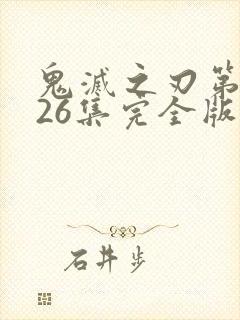 鬼滅之刃第
26集完全版
石井步